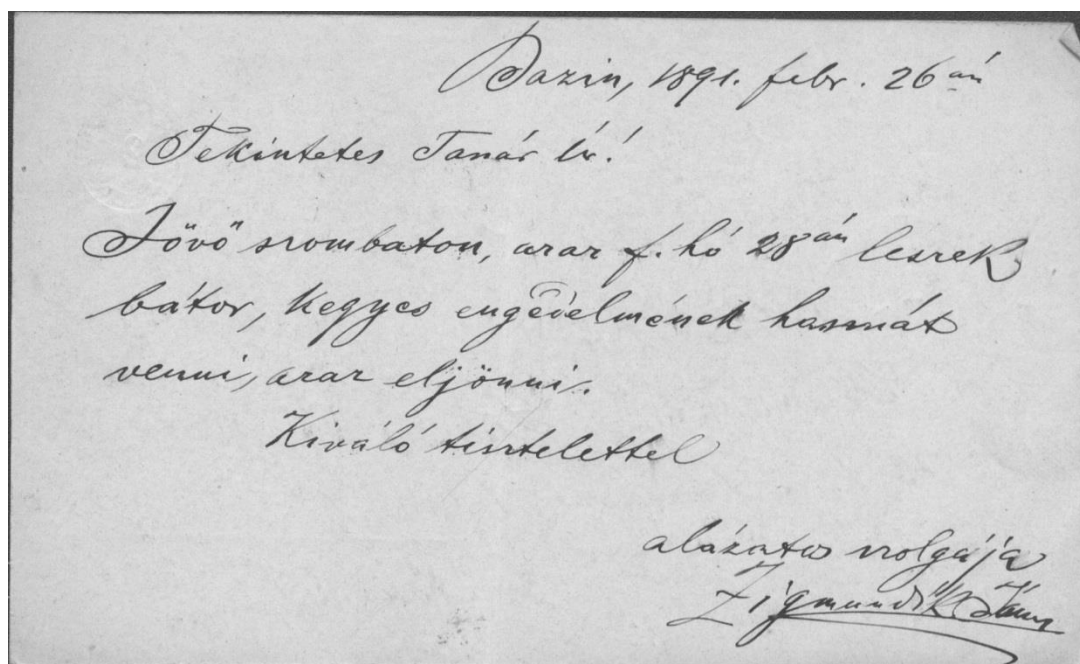 Bazin, 1891. febr. 26án
Tekintetes Tanár Úr!
Jövő szombaton, azaz f. hó 28án leszek
bátor, kegyes engedelmének hasznát
venni, azaz eljönni.
Kiváló tisztelettel
alázatos szolgája
Zigmundik János